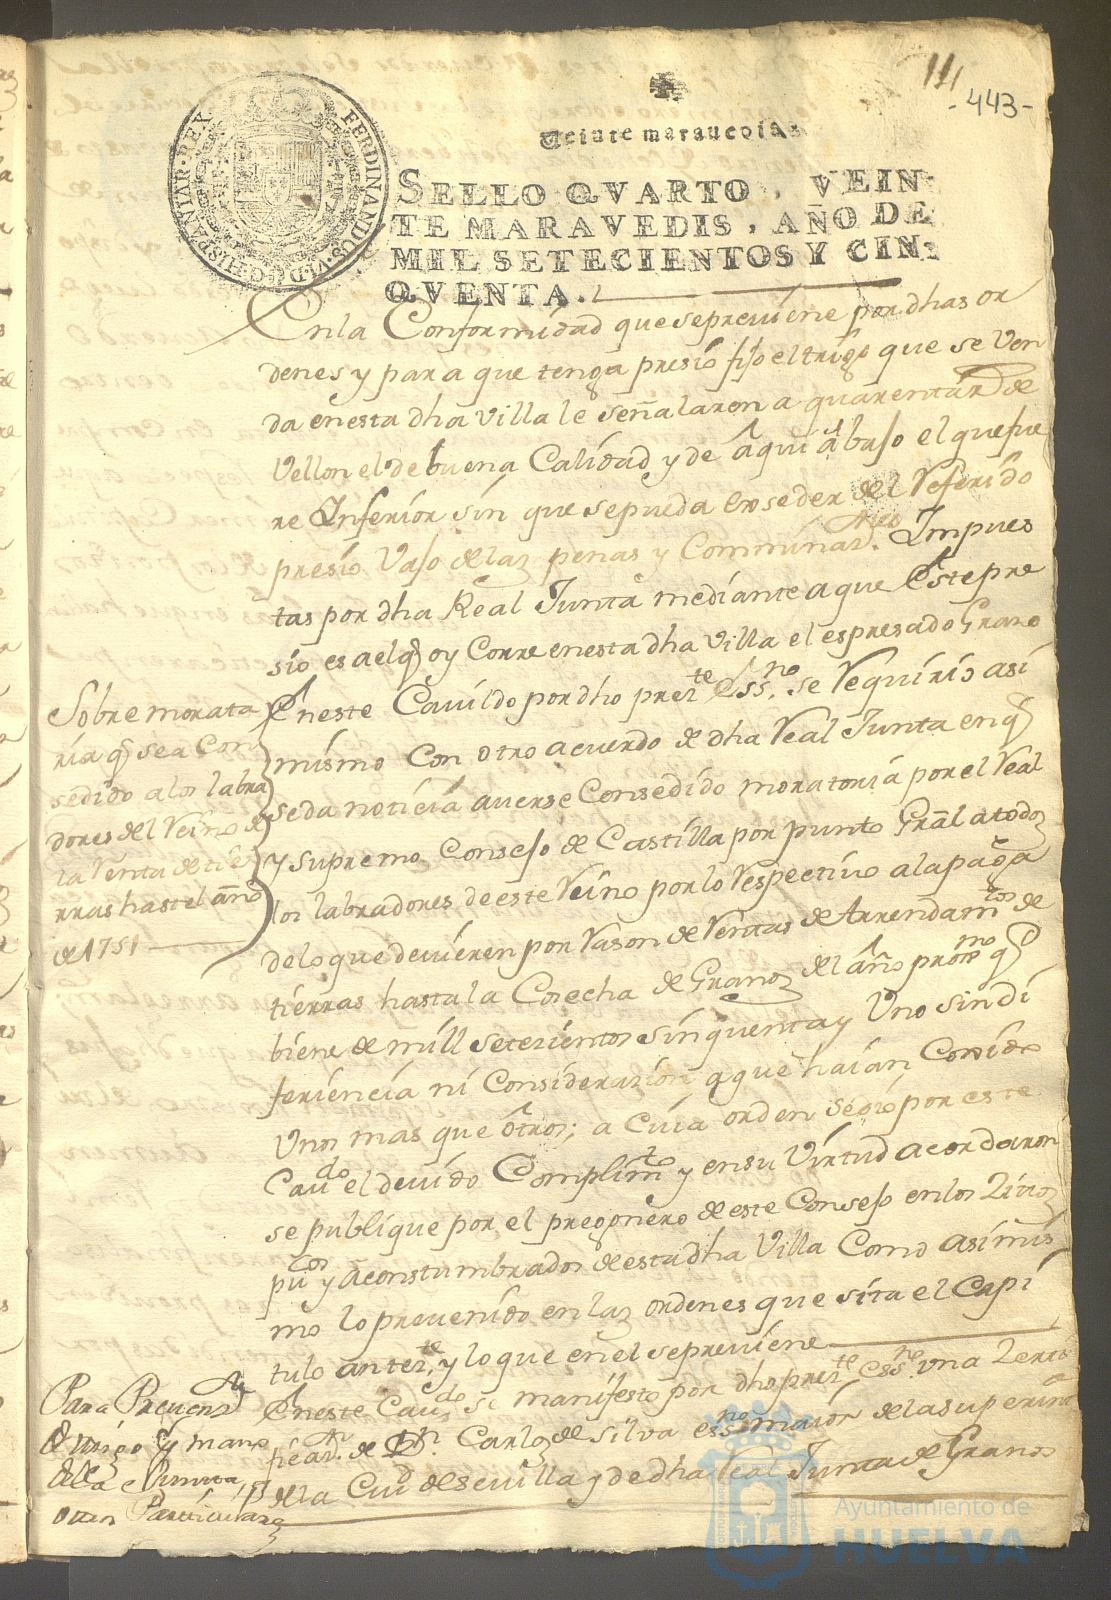 111
-443-
Veinte marauedis
FERDINANDUS·VI·D·G·HISPANIAR·REX
SELLO QVARTO, VEIN-
TE MARAVEDIS, AÑO DE
MIL SETECIENTOS Y CIN-
QVENTA.
En la Conformidad que se previene por dhas or
denes y para que tenga presio fijo el trigo que se Ven
da en esta dha Villa le señalaron a quarenta rs de
Vellon el de buena Calidad y de aqui abajo el que fue
re Inferior sin que se pueda exseder del Referido
presio Vajo de las penas y Comminaz.nes Impues
tas por dha Real Junta mediante a que Este pre
sio es a el q oy Corre en esta dha Villa el espresado Grano
Sobre morato
ria q sea Con
sedido a los labra
dores del Reino de
la Renta de tie
rras hasta el año
de 1751
En este Cavildo por dho prez.te Ess.no se Requirio asi
mismo Con otro acuerdo de dha Real Junta en q
se da noticia averse Consedido moratoria por el Real
y supremo Consejo de Castilla por punto Gral a todos
los labradores de este Reino por lo Respectivo a la paga
de lo que devieren por Rason de Rentas de Arrendam.tos de
tierras hasta la Cosecha de Granos del año proxmo q
biene de mill setezientos sinquenta y Uno sin di
feriencia ni Considerazion, q que haian Coxido
Unos mas que otros; a Cuia orden se dio por este
Cavdo el devido Complimto y en su Virtud acordaron
se publique por el pregonero de este Consejo en los Zitios
pucos y acostumbrados de esta dha Villa Como asimis
mo lo prevenido en las ordenes que sita el Capi
tulo anterte, y lo que en el se previene
Para Prevenz
trigo y mano
de la Junta, y
otros Particulares
En este Cavdo se manifesto por dho prez.te Ess.no Una Zerti
ficaz.on de Dn. Carlos de Silva essno maior de la superinta
de la Ciud de sevilla y de dha Real Junta de Granos
Ayuntamiento de
HUELVA